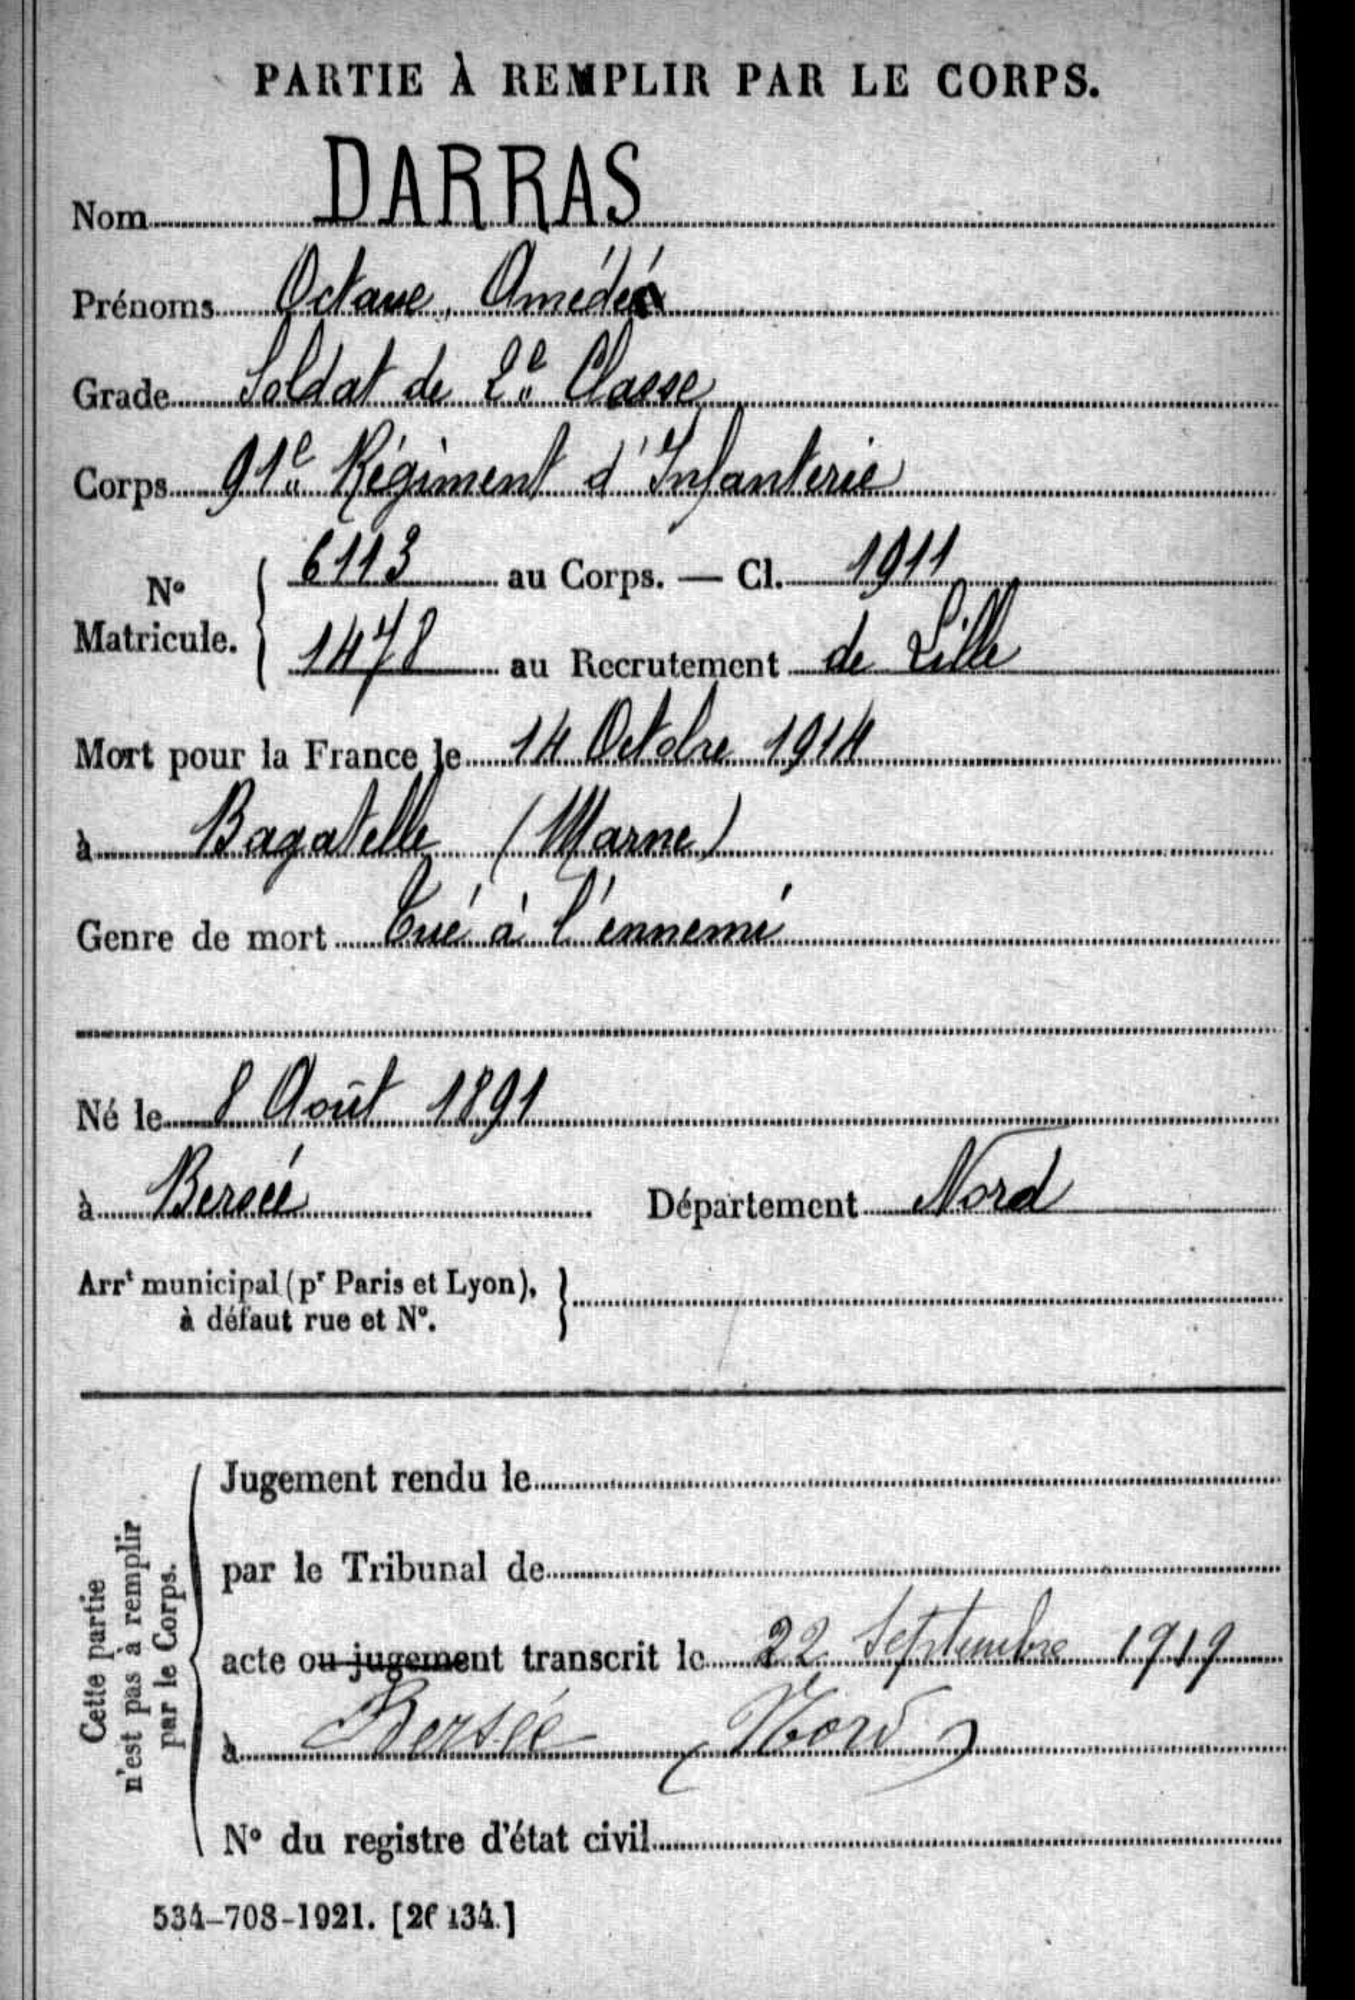 PARTIE À REMPLIR PAR LE CORPS.
Nom DARRAS
Prénoms Octave, Amédé
Grade Soldat de 2e Classe
Corps 91e Régiment d'Infanterie
N° Matricule. 6113 au Corps. — Cl. 1911
1478 au Recrutement de Lille
Mort pour la France le 14 Octobre 1914
à Bagatelle (Marne)
Genre de mort Tué à l'ennemi
Né le 8 Août 1891
à Bersée Département Nord
Arrt municipal (pr Paris et Lyon),
à défaut rue et N°.
Cette partie
n'est pas à remplir
par le Corps.
Jugement rendu le
par le Tribunal de
acte ou jugement transcrit le 22 Septembre 1919
à Bersée (Nord)
N° du registre d'état civil
534-708-1921. [26134.]